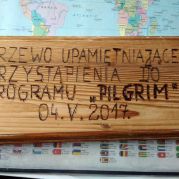 RZEWO UPAMIĘTNIAJĄCE
RZYSTĄPIENIA DO
ROGRAMU „PILGRIM”
04.V.2017